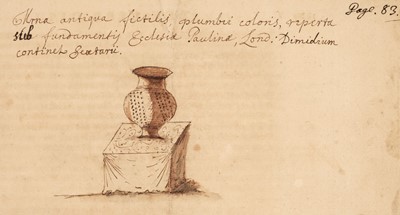 Page. 83.
Urna antiqua fictilis, plumbei coloris, reperta
sub fundamentis Ecclesiæ Paulinæ, Lond: Dimidium
continet sextarii.